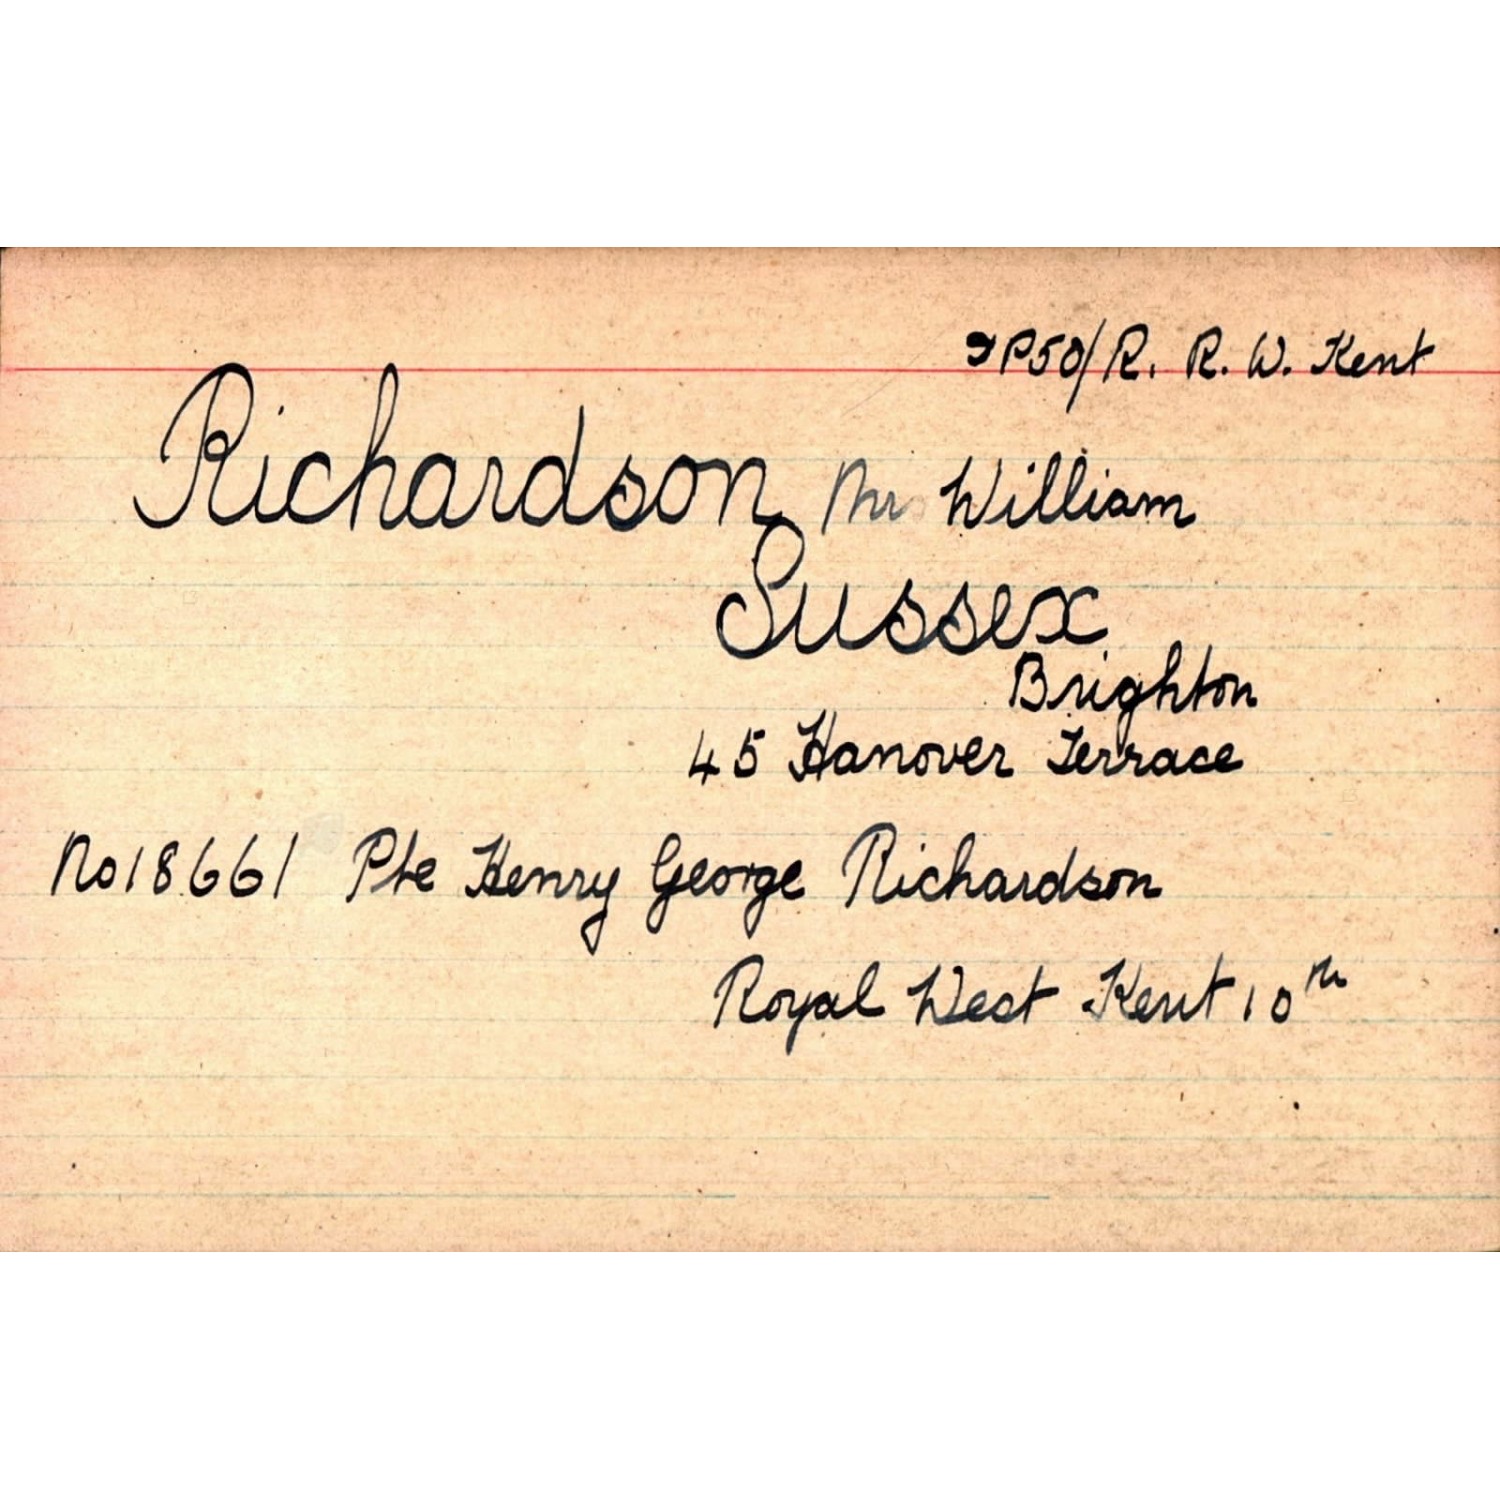 P50/R. R. W. Kent
Richardson Mr William
Sussex
Brighton
45 Hanover Terrace
No 18661 Pte Henry George Richardson
Royal West Kent 10th